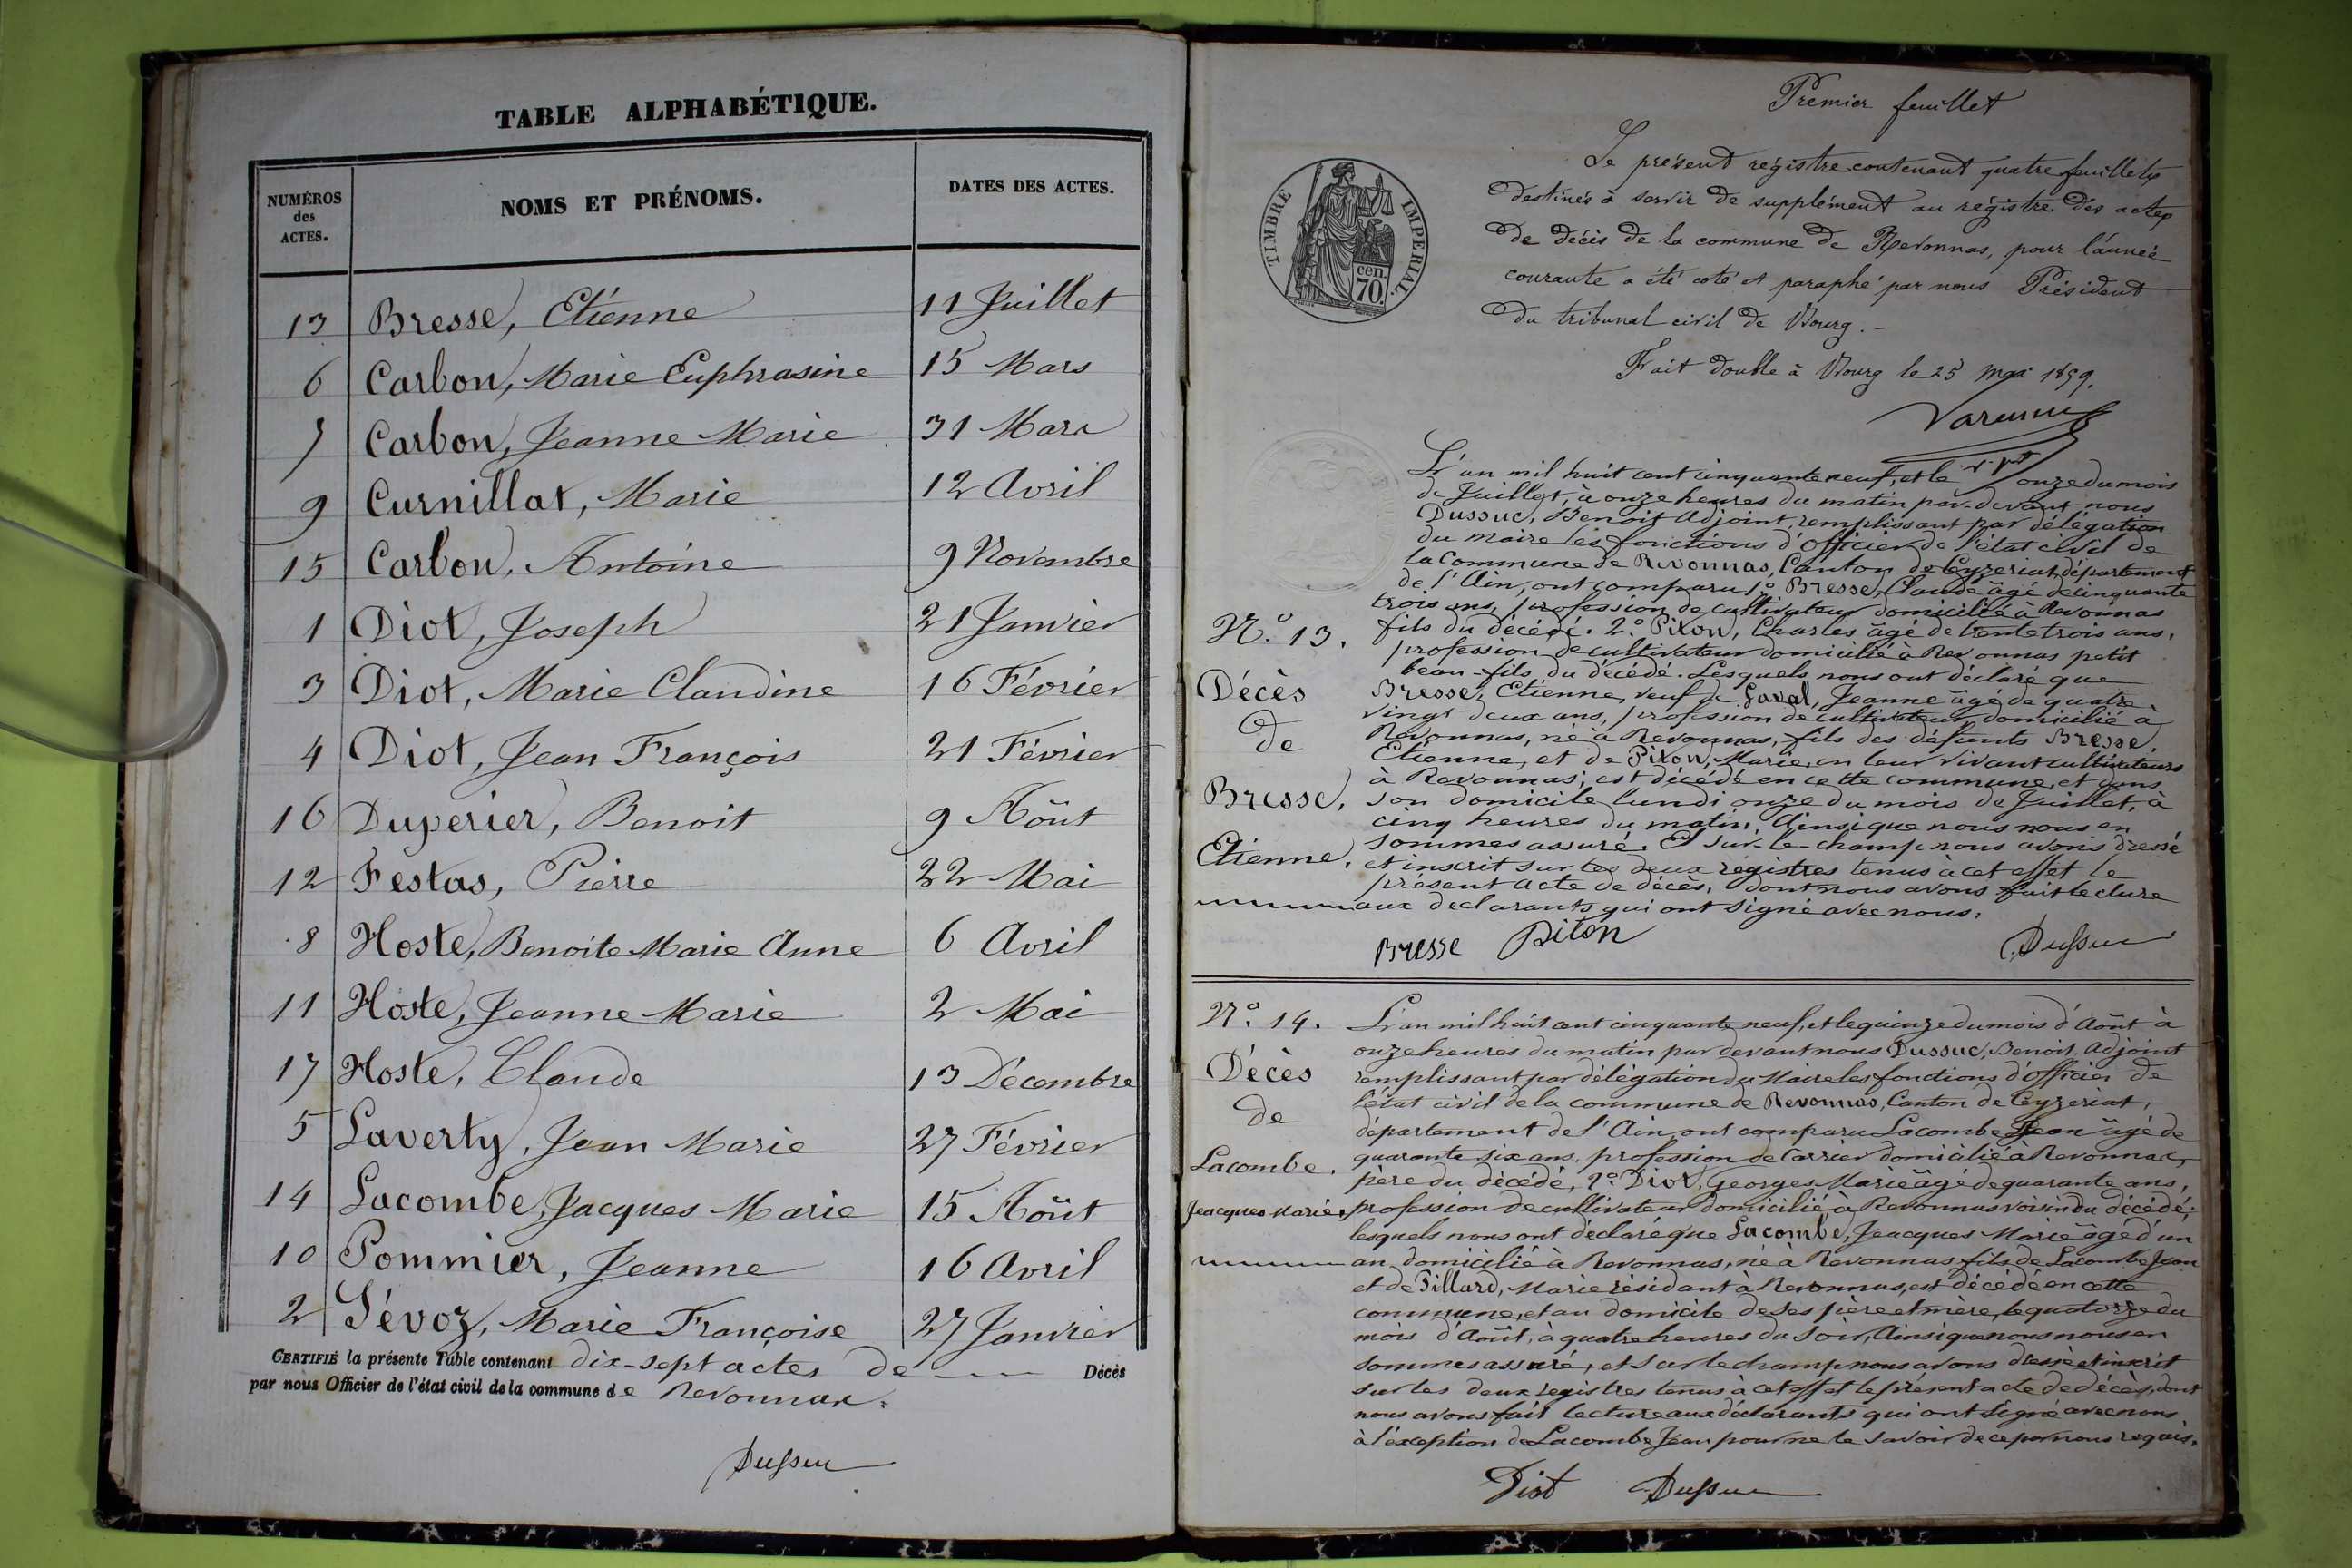 TABLE ALPHABÉTIQUE.
NUMÉROS des ACTES. NOMS ET PRÉNOMS. DATES DES ACTES.
13 Bresse, Etienne 11 Juillet
6 Carbon, Marie Euphrasine 15 Mars
7 Carbon, Jeanne Marie 31 Mars
9 Curnillat, Marie 12 Avril
15 Carbon, Antoine 9 Novembre
1 Diot, Joseph 21 Janvier
3 Diot, Marie Claudine 16 Février
4 Diot, Jean François 21 Février
16 Duperier, Benoit 9 Août
12 Festas, Pierre 22 Mai
8 Hoste, Benoite Marie Anne 6 Avril
11 Hoste, Jeanne Marie 2 Mai
17 Hoste, Claude 13 Décembre
5 Laverty, Jean Marie 27 Février
14 Lacombe, Jacques Marie 15 Août
10 Pommier, Jeanne 16 Avril
2 Sévoz, Marie Françoise 27 Janvier
CERTIFIÉ la présente Table contenant dix-sept actes de Décès
par nous Officier de l'état civil de la commune de Revonnas.
Dussuc
Premier feuillet
TIMBRE IMPERIAL.
cen.
70.
Le présent régistre contenant quatre feuillets
destinés à servir de supplément au régistre des actes
de décès de la commune de Revonnas, pour l'année
courante a été coté et paraphé par nous Président
du tribunal civil de Bourg.-
Fait double à Bourg le 25 mai 1859.
L'an mil huit cent cinquante neuf, et le onze du mois
de Juillet, à onze heures du matin par-devant nous
Dussuc, Benoit Adjoint, remplissant par délégation
du maire les fonctions d'Officier de l'état civil de
la Commune de Revonnas, Canton de Ceyzeriat, département
de l'Ain, ont comparu 1.º Bresse, Claude âgé de cinquante
trois ans, profession de cultivateur domicilié à Revonnas
N.º 13. fils du décédé. 2.º Piton, Charles âgé de trente trois ans,
profession de cultivateur domicilié à Revonnas petit
beau-fils du décédé. Lesquels nous ont déclaré que
Décès Bresse, Etienne, veuf de Laval, Jeanne âgé de quatre
vingt deux ans, profession de cultivateur domicilié à
de Revonnas, né à Revonnas, fils des défunts Bresse,
Etienne, et de Piton, Marie, en leur vivant cultivateurs
à Revonnas; est décédé en cette commune, et dans
Bresse, son domicile lundi onze du mois de Juillet, à
cinq heures du matin. Ainsi que nous nous en
sommes assuré. Et sur-le-champ nous avons dressé
Etienne. et inscrit sur les deux régistres tenus à cet effet le
présent acte de décès, dont nous avons fait lecture
aux déclarants qui ont signé avec nous.
Bresse Piton Dussuc
N.º 14. L'an mil huit cent cinquante neuf, et le quinze du mois d'Août à
onze heures du matin par devant nous Dussuc, Benoit, Adjoint
Décès remplissant par délégation du Maire les fonctions d'Officier de
l'état civil de la commune de Revonnas, Canton de Ceyzeriat,
de département de l'Ain, ont comparu Lacombe Jean âgé de
Lacombe. quarante six ans, profession de Carrier domicilié à Revonnas,
père du décédé, 2.º Diot, Georges Marie âgé de quarante ans,
Jeacques Marie, profession de cultivateur domicilié à Revonnas voisin du décédé;
lesquels nous ont déclaré que Lacombe, Jeacques Marie âgé d'un
an domicilié à Revonnas, né à Revonnas fils de Lacombe Jean
et de Pillard, Marie résidant à Revonnas, est décédé en cette
commune, et au domicile de ses père et mère, le quatorze du
mois d'Août, à quatre heures du Soir, Ainsi que nous nous en
sommes assuré, et sur le champ nous avons dressé et inscrit
sur les deux registres tenus à cet effet le présent acte de décès, dont
nous avons fait lecture aux déclarants qui ont signé avec nous
à l'éxception de Lacombe Jean pour ne le savoir de ce par nous requis.
Diot Dussuc